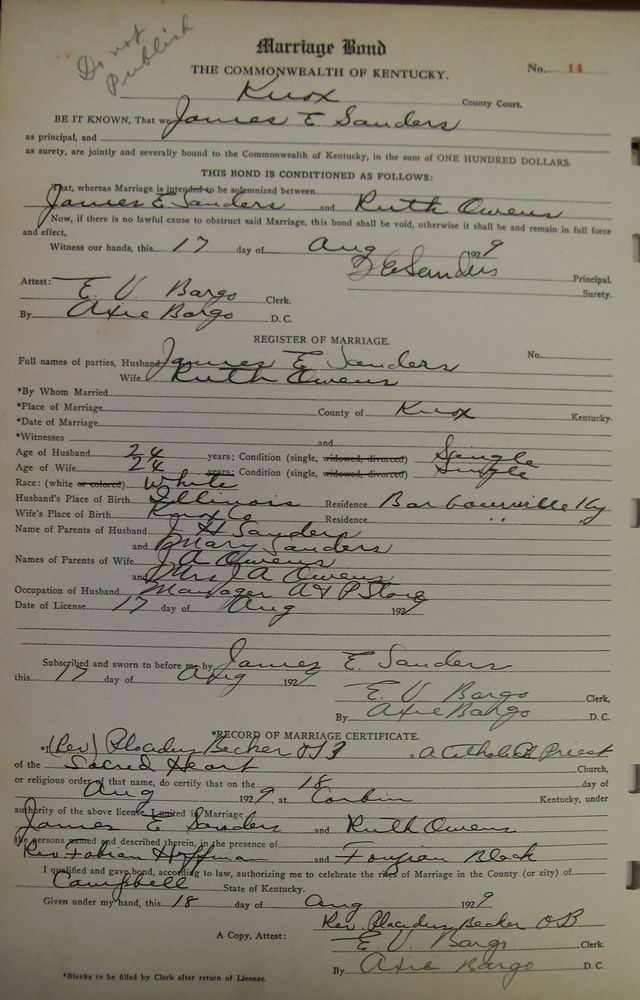 Do not
Publish
Marriage Bond
THE COMMONWEALTH OF KENTUCKY.
No. 14
Knox County Court.
BE IT KNOWN, That we James E Sanders
as principal, and
as surety, are jointly and severally bound to the Commonwealth of Kentucky, in the sum of ONE HUNDRED DOLLARS.
THIS BOND IS CONDITIONED AS FOLLOWS:
That, whereas Marriage is intended to be solemnized between
James E Sanders and Ruth Owens
Now, if there is no lawful cause to obstruct said Marriage, this bond shall be void, otherwise it shall be and remain in full force
and effect,
Witness our hands, this 17 day of Aug 1929
J E Sanders Principal.
Surety.
Attest:
E. V. Bargo Clerk.
By Axie Bargo D. C.
REGISTER OF MARRIAGE.
Full names of parties, Husband James E Sanders No.
Wife Ruth Owens
*By Whom Married
*Place of Marriage County of Knox Kentucky.
*Date of Marriage
*Witnesses and
Age of Husband 24 years; Condition (single, widowed, divorced) Single
Age of Wife 24 years; Condition (single, widowed, divorced) Single
Race: (white or colored) White
Husband's Place of Birth Illinois Residence Barbourville Ky
Wife's Place of Birth Knox Co Residence " "
Name of Parents of Husband J H Sanders
and Mary Sanders
Names of Parents of Wife J A Owens
and Mrs J A Owens
Occupation of Husband Manager A & P Store
Date of License 17 day of Aug 1929
Subscribed and sworn to before me by James E. Sanders
this 17 day of Aug 1929
E. V. Bargo Clerk,
By Axie Bargo D. C.
*RECORD OF MARRIAGE CERTIFICATE.
*I (Rev) Placidus Becker , a Catholic Priest
of the Sacred Heart Church,
or religious order of that name, do certify that on the 18 day of
Aug 1929, at Corbin Kentucky, under
authority of the above license I united in Marriage
James E Sanders and Ruth Owens
the persons named and described therein, in the presence of
Rev Fabian Hoffman and Black
I qualified and gave bond, according to law, authorizing me to celebrate the rites of Marriage in the County (or city) of
Campbell State of Kentucky.
Given under my hand, this 18 day of Aug 1929
Rev. Placidus Becker OSB
A Copy, Attest: E. V. Bargo Clerk.
By Axie Bargo D. C.
*Blanks to be filled by Clerk after return of License.